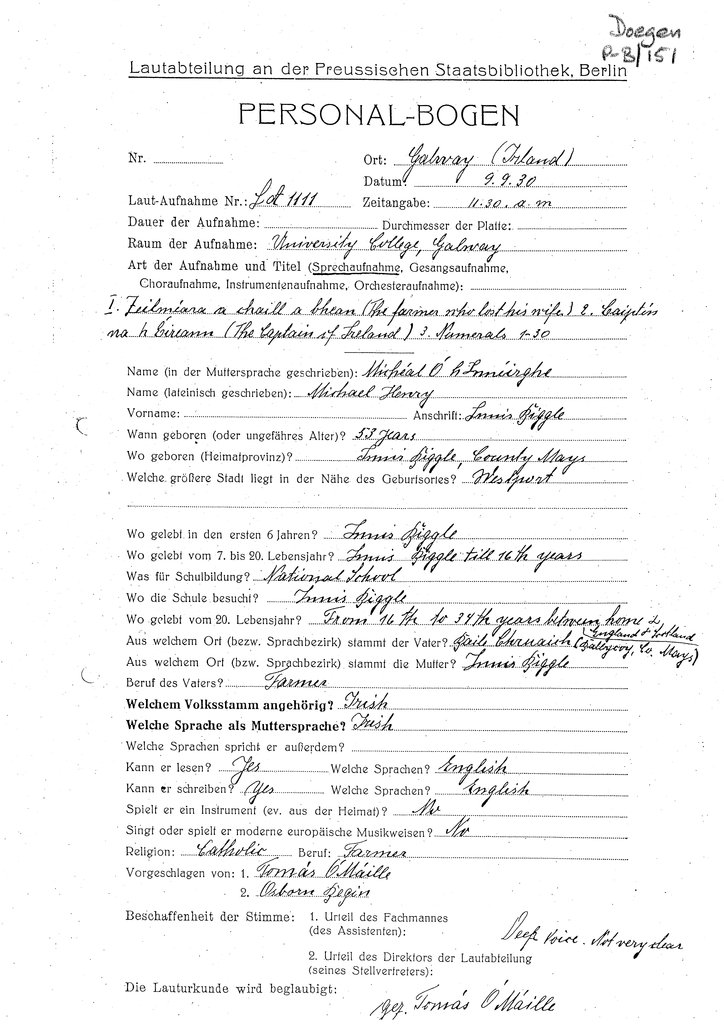 Doegen
P-B/151
Lautabteilung an der Preussischen Staatsbibliothek, Berlin
PERSONAL-BOGEN
Nr. Ort: Galway (Irland)
Datum: 9.9.30
Laut-Aufnahme Nr.: LA 1111 Zeitangabe: 11.30. a.m
Dauer der Aufnahme: Durchmesser der Platte:
Raum der Aufnahme: University College, Galway
Art der Aufnahme und Titel (Sprechaufnahme, Gesangsaufnahme,
Choraufnahme, Instrumentenaufnahme, Orchesteraufnahme):
I. Feilméara a chaill a bhean (The farmer who lost his wife) 2. Caiptín
na h Éireann (The Captain of Ireland) 3. Numerals 1-30
Name (in der Muttersprache geschrieben): Mícheál Ó h Inneirghe
Name (lateinisch geschrieben): Michael Henry
Vorname: Anschrift: Innis Biggle
Wann geboren (oder ungefähres Alter)? 53 Years
Wo geboren (Heimatprovinz)? Innis Biggle, County Mayo
Welche größere Stadt liegt in der Nähe des Geburtsortes? Westport
Wo gelebt in den ersten 6 Jahren? Innis Biggle
Wo gelebt vom 7. bis 20. Lebensjahr? Innis Biggle till 16th years
Was für Schulbildung? National School
Wo die Schule besucht? Innis Biggle
Wo gelebt vom 20. Lebensjahr? From 16th to 34th years between home &
England & Scotland
Aus welchem Ort (bezw. Sprachbezirk) stammt der Vater? Baile Chruaich (Ballycroy, Co. Mayo)
Aus welchem Ort (bzw. Sprachbezirk) stammt die Mutter? Innis Biggle
Beruf des Vaters? Farmer
Welchem Volksstamm angehörig? Irish
Welche Sprache als Muttersprache? Irish
Welche Sprachen spricht er außerdem?
Kann er lesen? Yes Welche Sprachen? English
Kann er schreiben? Yes Welche Sprachen? English
Spielt er ein Instrument (ev. aus der Heimat)? No
Singt oder spielt er moderne europäische Musikweisen? No
Religion: Catholic Beruf: Farmer
Vorgeschlagen von: 1. Tomás Ó Máille
2. Osborn Bergin
Beschaffenheit der Stimme: 1. Urteil des Fachmannes
(des Assistenten): Deep voice. Not very clear
2. Urteil des Direktors der Lautabteilung
(seines Stellvertreters):
Die Lauturkunde wird beglaubigt:
gez. Tomás Ó Máille